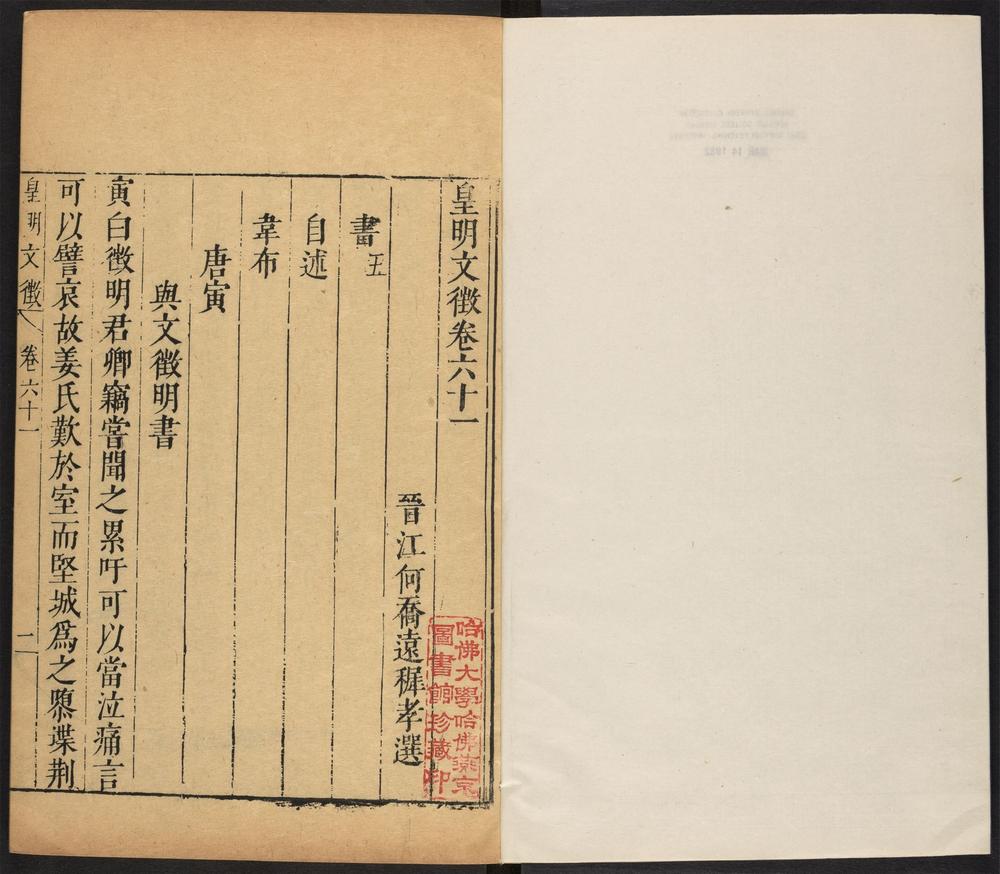 皇明文徵卷六十一
晉江何喬遠穉孝選
書五
自述
韋布
唐寅
與文徵明書
寅白徵明君卿竊嘗聞之累吁可以當泣痛言
可以譬哀故姜氏歎於室而堅城為之隳堞荆
皇明文徵
卷六十一
哈佛大學哈佛燕京
圖書館珍藏印
MAR 14 1932